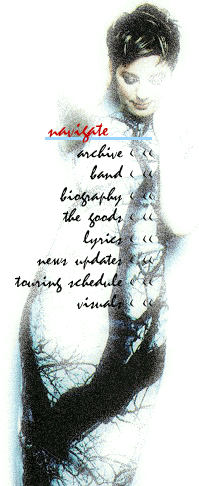 navigate
archive ‹ ‹‹
band ‹ ‹‹
biography ‹ ‹‹
the goods ‹ ‹‹
lyrics ‹ ‹‹
news updates ‹ ‹‹
touring schedule ‹ ‹‹
visuals ‹ ‹‹